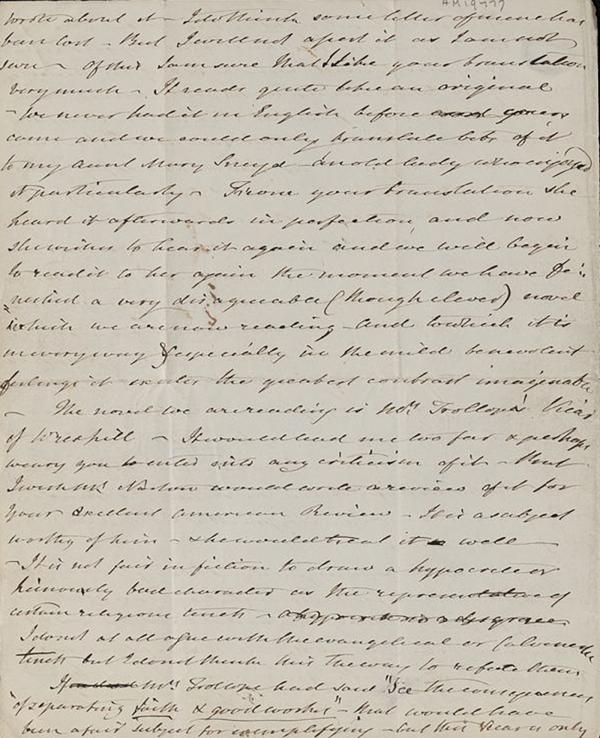 AM 19777
wrote about it - I do think some letter of mine has
been lost - But I will not assert it as I am not
sure - Of this I am sure that I like your translation
very much - It reads quite like an original
- We never had it in English before yours
came and we could only translate bits of it
to my aunt Mary Sneyd - an old lady who enjoyed
it particularly - From your translation she
heard it afterwards in perfection and now
she wishes to hear it again and we will begin
to read it to her again the moment we have fi-
nished a very disagreeable (though clever) novel
which we are now reading - and to which it is
in every way & especially in the mild benevolent
feelings it excites the greatest contrast imaginable
- The novel we are reading is Mrs Trollope's Vicar
of Wrexhill - It would lead me too far & perhaps
weary you to enter into any criticism of it - But
I wish Mr Norton would write a review of it for
your excellent American Review - It is a subject
worthy of him - & he would treat it well
- It is not fair in fiction to draw a hypocrite or
heinously bad character as the representative of
certain religious tenets -
I do not at all agree with the evangelical or Calvinistic
tenets but I do not think this the way to refute them
If Mrs Trollope had said "See the consequences
of separating faith & good works" - that would have
been a fair subject for exemplifying - but this Vicar is only